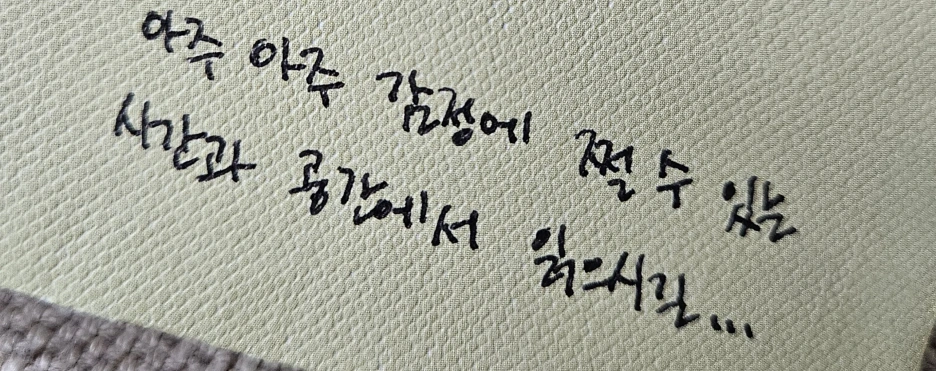 아주 아주 감정에 쩔 수 있는
시간과 공간에서 읽으시길...